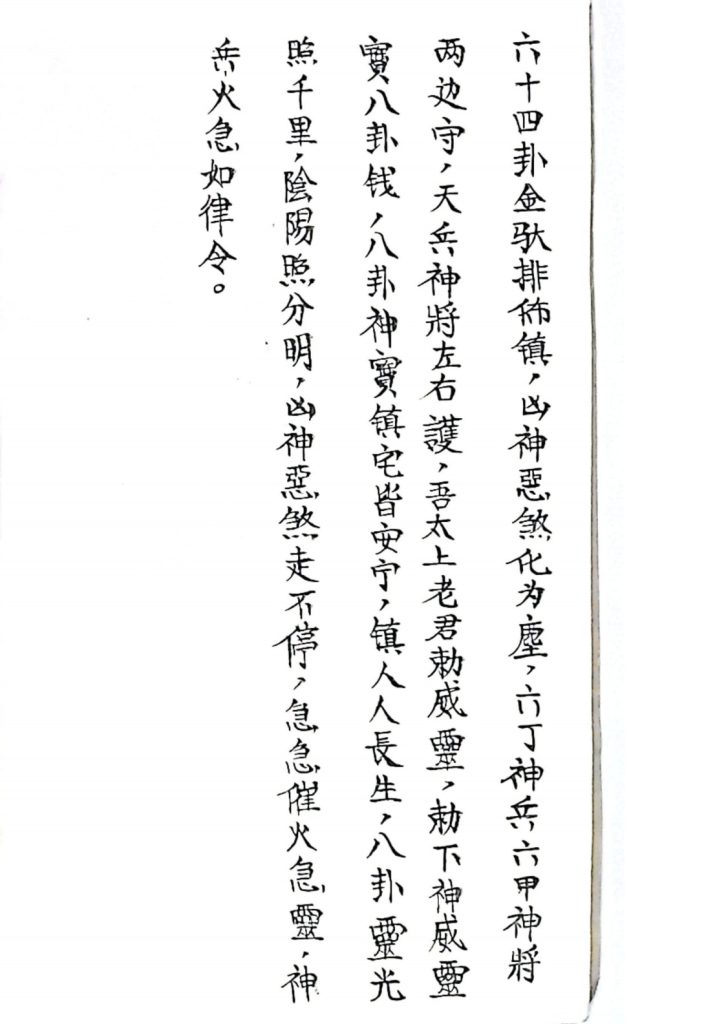 六十四卦金䭾排佈镇，凶神惡煞化为塵，六丁神兵六甲神將
两边守，天兵神將左右護，吾太上老君勅威靈，勅下神威靈
寳八卦钱，八卦神寳镇宅皆安宁，镇人人長生，八卦靈光
照千里，陰陽照分明，凶神惡煞走不停，急急催火急靈，神
兵火急如律令。